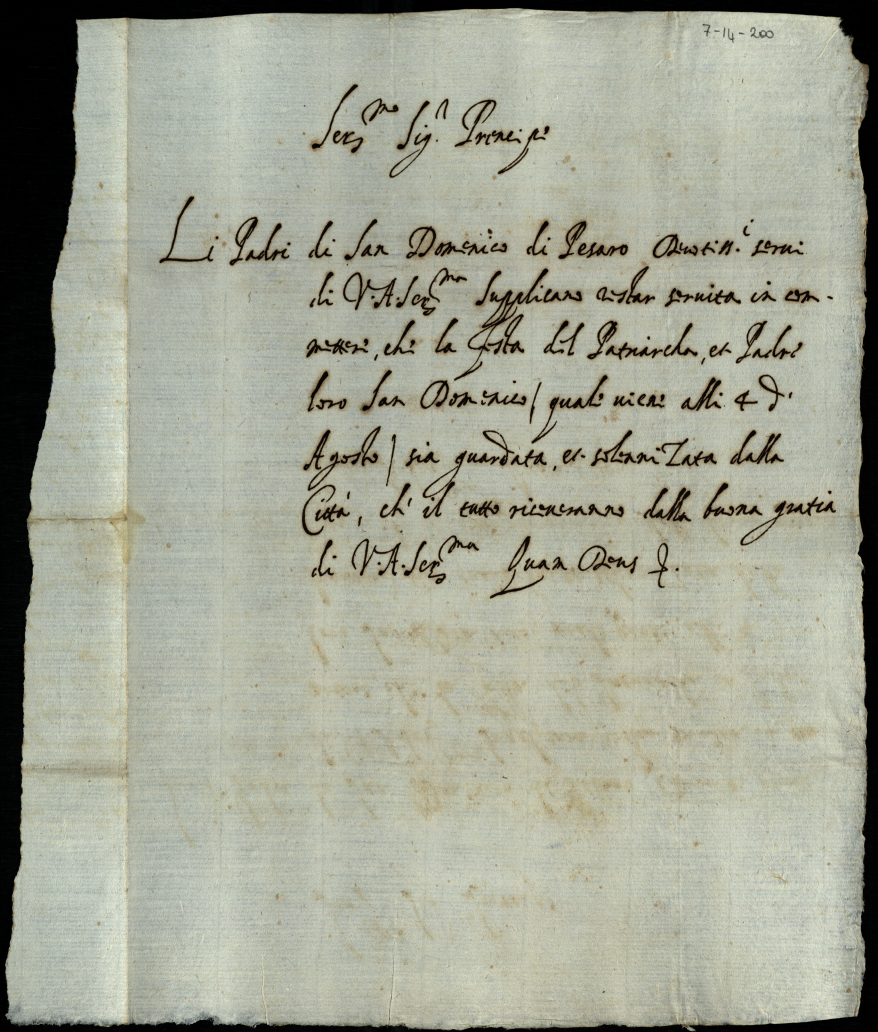 7-14-200
Ser.mo Sig.r Prencipe
Li Padri di San Domenico di Pesaro Deuotiss.i serui
di V. A. Ser.ma Supplicano restar seruita in com-
mettere, che la festa del Patriarcha, et Padre
loro San Domenico / quale uiene alli 4 d'
Agosto / sia guardata, et solenniZata dalla
Città, ch' il tutto riceueranno dalla buona gratia
di V. A. Ser.ma Quam Deus